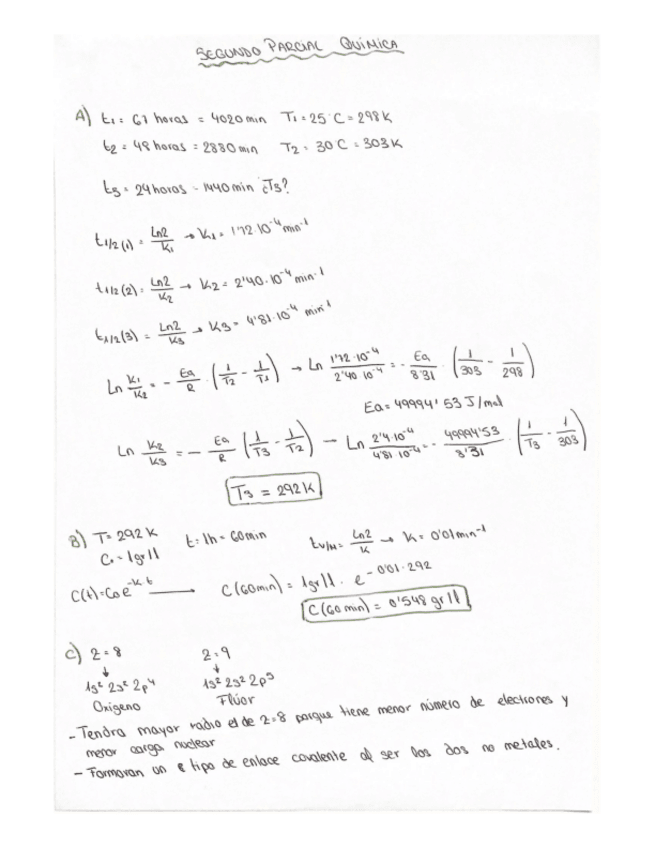 SEGUNDO PARCIAL QUÍMICA
A) t1 = 67 horas = 4020 min T1 = 25°C = 298 K
t2 = 48 horas = 2880 min T2 = 30 C = 303 K
t3 = 24 horas - 1440 min ¿T3?
t1/2 (1) = Ln2/K1 → K1 = 1'72·10^-4 min^-1
t1/2 (2) = Ln2/K2 → K2 = 2'40·10^-4 min^-1
t1/2 (3) = Ln2/K3 → K3 = 4'81·10^-4 min^-1
Ln K1/K2 = - Ea/R · (1/T2 - 1/T1) → Ln 1'72·10^-4/2'40·10^-4 = - Ea/8'31 · (1/303 - 1/298)
Ea = 49994'53 J/mol
Ln K2/K3 = - Ea/R (1/T3 - 1/T2) - Ln 2'4·10^-4/4'81·10^-4 = - 49994'53/8'31 · (1/T3 - 1/303)
T3 = 292 K
B) T = 292 K t = 1h = 60 min = Ln2/K → K = 0'01 min^-1
C0 = 1 gr/l
C(t) = C0 e^-K·t → C(60 min) = 1 gr/l · e^-0'01·292
C(60 min) = 0'548 gr/l
C) Z = 8 Z = 9
↓ ↓
1s² 2s² 2p⁴ 1s² 2s² 2p⁵
Oxígeno Flúor
- Tendra mayor radio el de Z=8 porque tiene menor número de electrones y
menor carga nuclear
- Formaran un tipo de enlace covalente al ser los dos no metales.